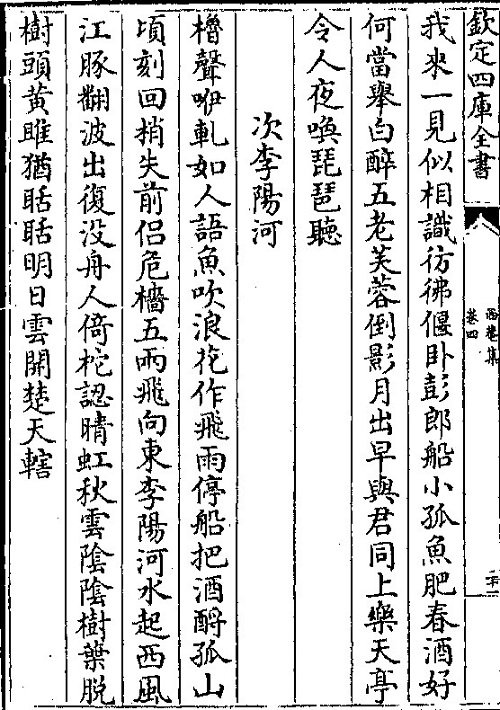 欽定四庫全書
西巷集
卷四
我來一見似相識彷彿偃卧彭郎船小孤魚肥春酒好
何當舉白醉五老芙蓉倒影月出早與君同上樂天亭
令人夜喚琵琶聽
次李陽河
櫓聲咿軋如人語魚吹浪花作飛雨停船把酒酹孤山
頃刻回梢失前侶危檣五兩飛向東李陽河水起西風
江豚翻波出復没舟人倚柁認晴虹秋雲陰陰樹葉脱
樹頭黄雎猶聒聒明日雲開楚天轄